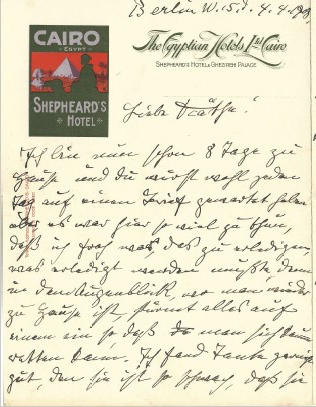 Berlin W. 15. d. 4.4.09.
CAIRO
EGYPT
SHEPHEARD'S
HOTEL
The Egyptian Hotels Ltd Cairo
SHEPHEARD'S HOTEL & GHEZIREH PALACE
Liebe Käthe!
Ich bin nun schon 8 Tage zu
Hause und du wirst wohl jeden
Tag auf einen Brief gewartet haben
aber es war hier so viel zu thun,
daß ich froh war, das zu erledigen,
was erledigt werden mußte, denn
in dem Augenblick, wo man wieder
zu Hause ist, stürmt alles auf
einem ein so daß man sich kaum
retten kann. Ich fand Tante
gut, denn sie ist so schwach, daß sie